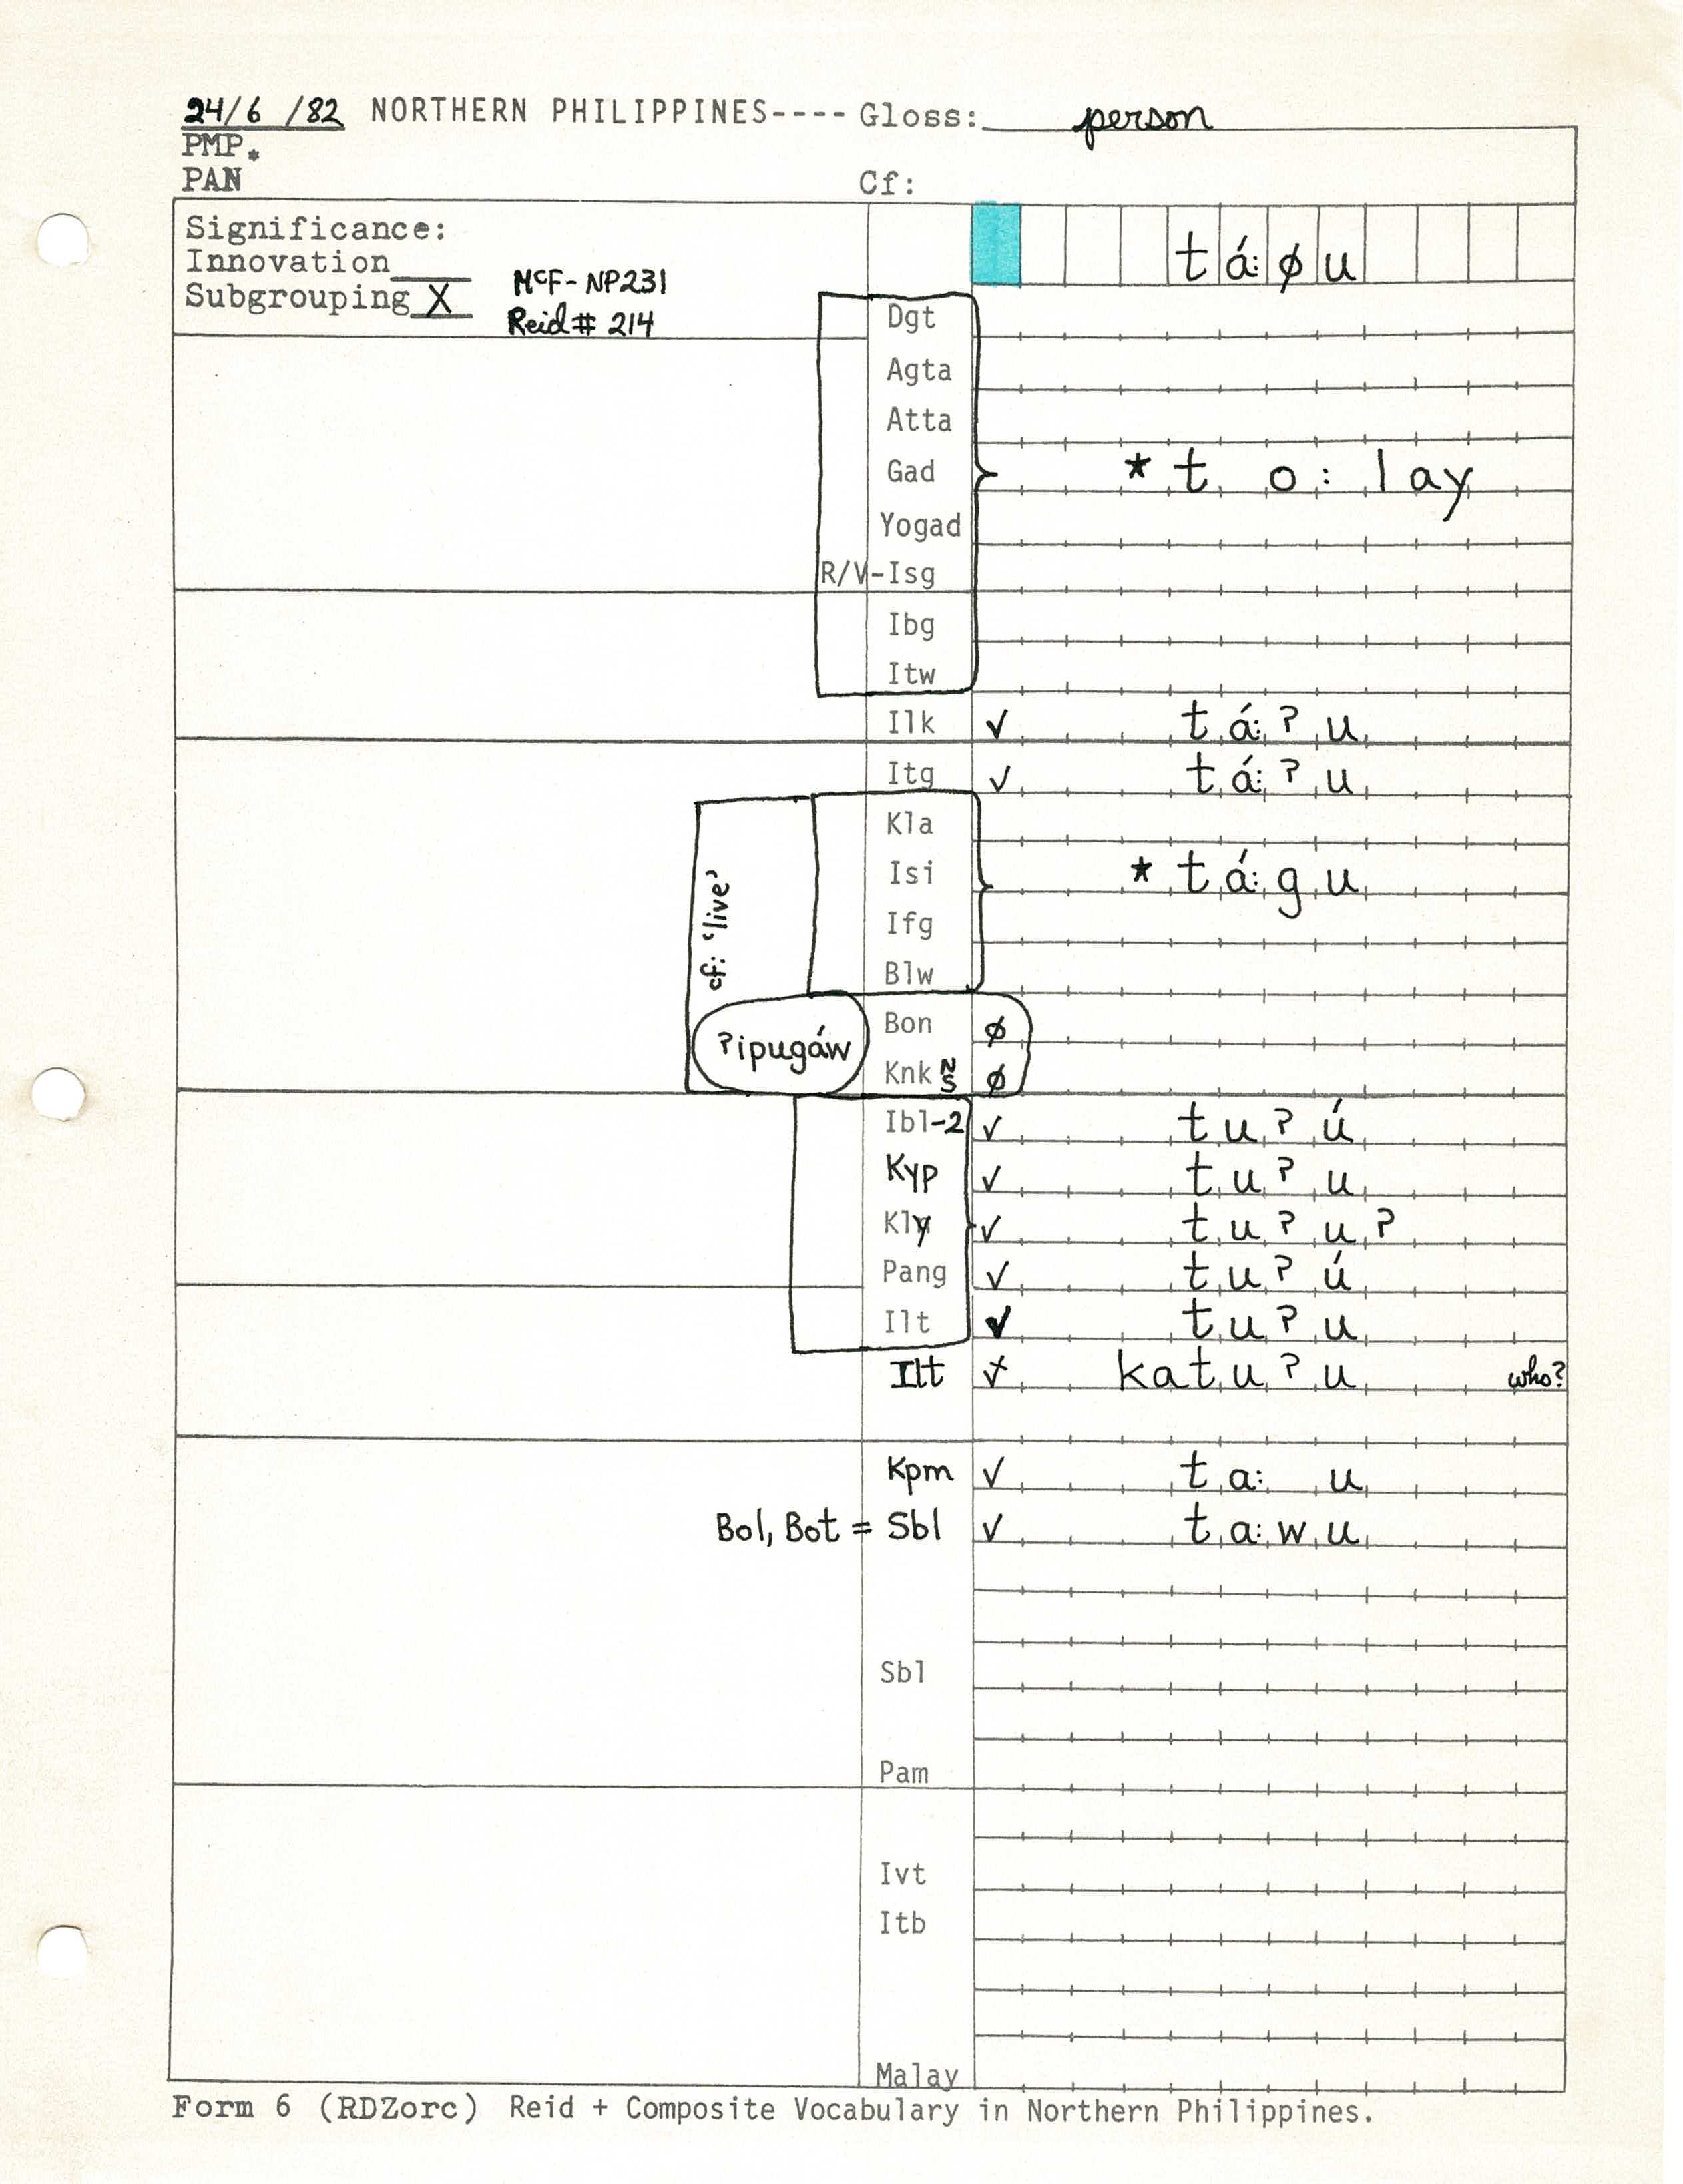 24/6 /82 NORTHERN PHILIPPINES---- Gloss: person
PMP*
PAN Cf:
Significance:
Innovation
Subgrouping X
McF-NP231
Reid# 214
tá: øu
Dgt
Agta
Atta
Gad *to:lay
Yogad
R/V-Isg
Ibg
Itw
Ilk ✓ tá:ʔu
Itg ✓ tá:ʔu
cf: 'live'
Kla
Isi *tá:gu
Ifg
Blw
ʔipugáw
Bon ø
Knk N S ø
Ibl-2 ✓ tuʔú
Kyp ✓ tuʔu
Kly ✓ tuʔuʔ
Pang ✓ tuʔú
Ilt ✓ tuʔu
Ilt ✓ katuʔu who?
Kpm ✓ ta: u
Bol, Bot = Sbl ✓ ta:wu
Sbl
Pam
Ivt
Itb
Malay
Form 6 (RDZorc) Reid + Composite Vocabulary in Northern Philippines.